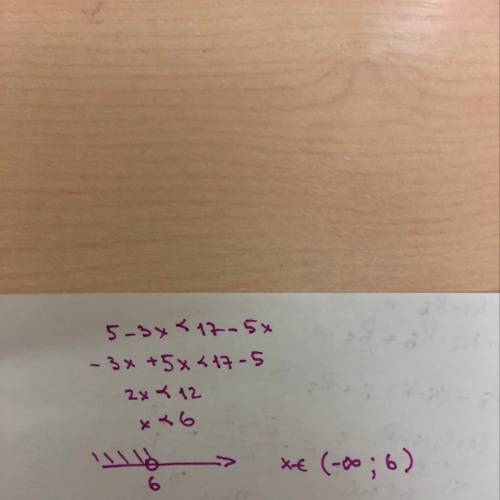 5 - 3x < 17 - 5x
- 3x + 5x < 17 - 5
2x < 12
x < 6
6
x ∈ (-∞ ; 6)